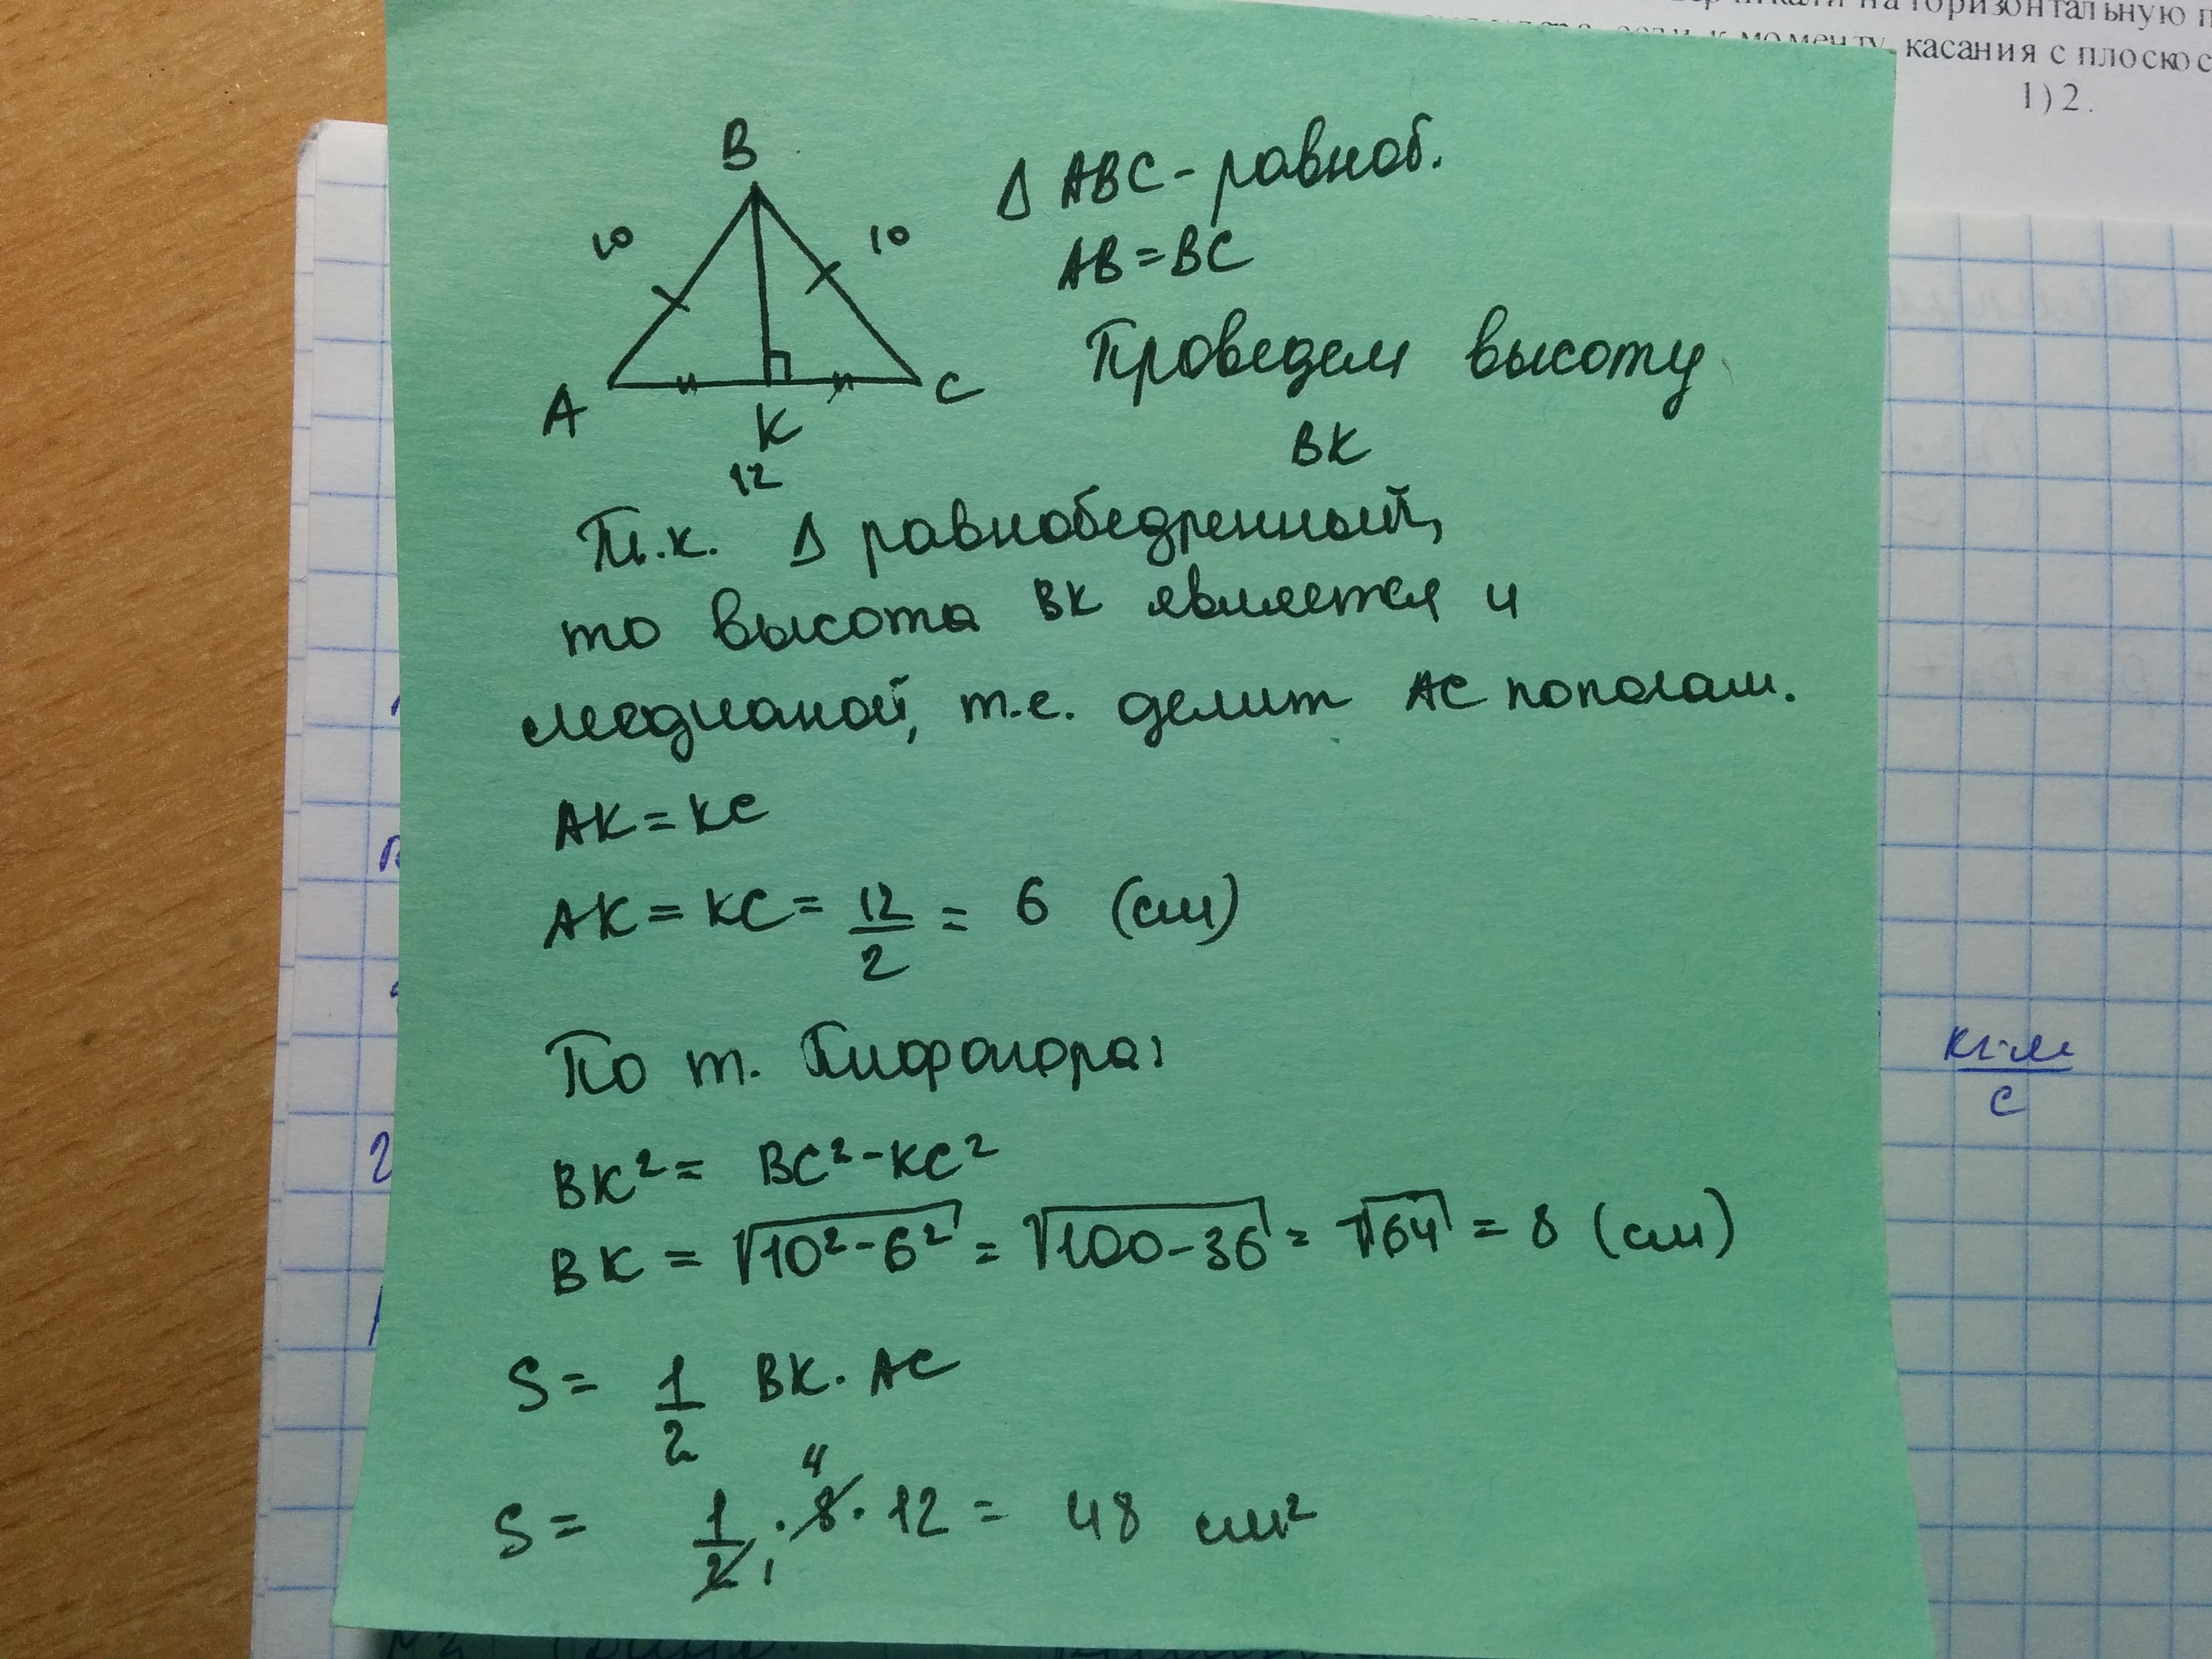 на горизонтальную
к моменту касания с плоскос
1) 2.
B
10
10
A
K
C
12
Δ ABC - равноб.
AB = BC
Проведем высоту
BK
Т.к. Δ равнобедренный,
то высота BK является и
медианой, т.е. делит AC пополам.
AK = KC
AK = KC = 12/2 = 6 (см)
По т. Пифагора:
BK² = BC² - KC²
BK = √10² - 6² = √100 - 36 = √64 = 8 (см)
S = 1/2 BK · AC
4
S = 1/2 · 8 · 12 = 48 см²
1
кг·м/с